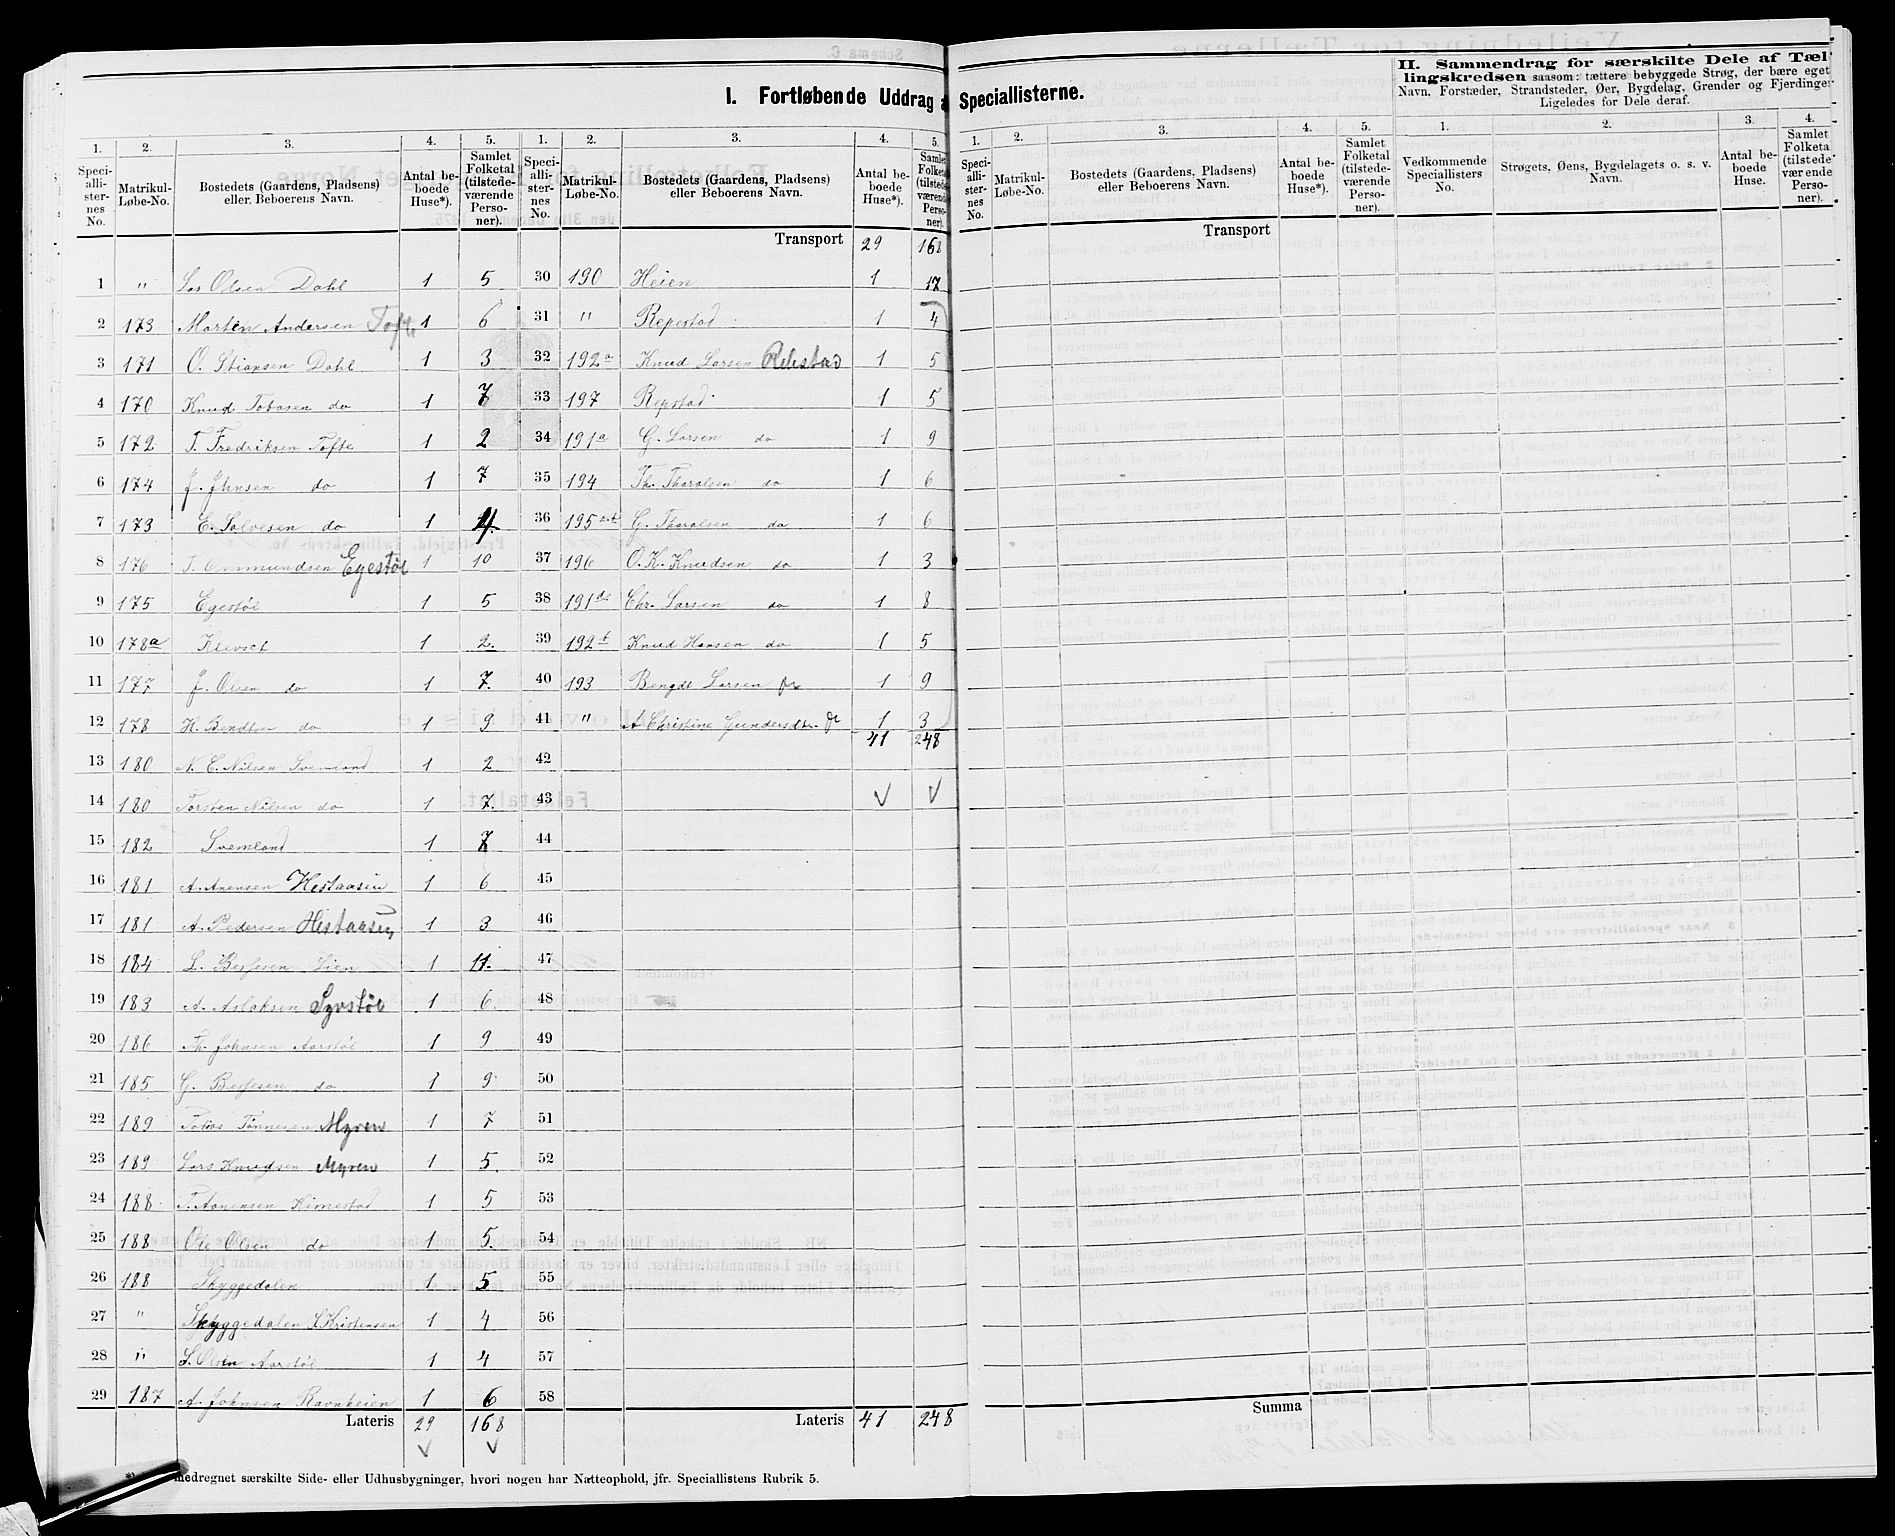 I. Fortløbende Uddrag a Speciallisterne.
II. Sammendrag for særskilte Dele af Tæl-
lingskredsen saasom: tættere bebyggede Strøg, der bære eget
Navn, Forstæder, Strandsteder, Øer, Bygdelag, Grender og Fjerdinger
Ligeledes for Dele deraf.
1. 2. 3. 4. 5. 1. 2. 3. 4. 5.
Speci-alli-ster-nes No. Matrikul-Løbe-No. Bostedets (Gaardens, Pladsens) eller Beboerens Navn. Antal be-boede Huse*). Samlet Folketal (tilstede-værende Perso-ner). Speci-alli-ster-nes No. Matrikul-Løbe-No. Bostedets (Gaardens, Pladsens) eller Beboerens Navn. Antal be-boede Huse*). Samlet Folketal (tilstede-værende Perso-ner).
Transport 29 168
1 " Lars Olsen Dahl 1 5 30 190 Heien 1 17
2 173 Morten Andersen Tofte 1 6 31 " Repestad 1 4
3 171 O. Stiansen Dahl 1 3 32 192a Knud Larsen Repstad 1 5
4 170 Knud Tobasen do 1 7 33 197 Repstad 1 5
5 172 T. Fredriksen Tofte 1 2 34 191a G. Larsen do 1 9
6 174 J. Jhnsen do 1 7 35 194 Th. Tharalsen do 1 6
7 173 E. Salvesen do 1 4 36 195 G. Tharalsen do 1 6
8 176 Egestøl 1 10 37 196 O. K. Knudsen do 1 3
9 175 Egestøl 1 5 38 191 Chr. Larsen do 1 8
10 178a Klevset 1 2. 39 192b Knud Hansen do 1 5
11 177 J. Olsen do 1 7. 40 193 Bengdt Larsen do 1 9
12 178 H. Bendtsen do 1 9 41 " A Christine Gundersdtr. do 1 3
41 248
13 180 N. C. Nilsen Svemland 1 2 42
14 180 Torsten Nilsen do 1 7. 43
15 182 Svemland 1 7 44
16 181 A. Anensen Hestaasen 1 6 45
17 181 A. Pedersen Hestaasen 1 3 46
18 184 L. Bessesen Lien 1 11. 47
19 183 A. Aslaksen Syrstøl 1 6 48
20 186 Th. Johnsen Aarstøl 1 9 49
21 185 G. Bessesen do 1 9 50
22 189 Tobias Tønnesen Myren 1 7 51
23 189 Lars Knudsen Myren 1 5. 52
24 188 T. Aanensen Kimestad 1 5 53
25 188 Ole Olsen do 1 5. 54
26 188 Skyggedalen 1 5 55
27 " Skyggedalen K Kristensen 1 4 56
28 " S. Olsen Aarstøl 1 4 57
29 187 A. Johnsen Ravnheien 1 6 58
Lateris 29 168 Lateris 41 248
medregnet særskilte Side- eller Udhusbygninger, hvori nogen har Natteophold, jfr. Speciallistens Rubrik 5.
1. 2. 3. 4. 5. 1. 2. 3. 4.
Speci-alli-ster-nes No. Matrikul-Løbe-No. Bostedets (Gaardens, Pladsens) eller Beboerens Navn. Antal be-boede Huse*). Samlet Folketal (tilstede-værende Perso-ner). Vedkommende Speciallisters No. Strøgets, Øens, Bygdelagets o. s. v. Navn. Antal be-boede Huse. Samlet Folketal (tilstede-værende Perso-ner).
Transport
Summa